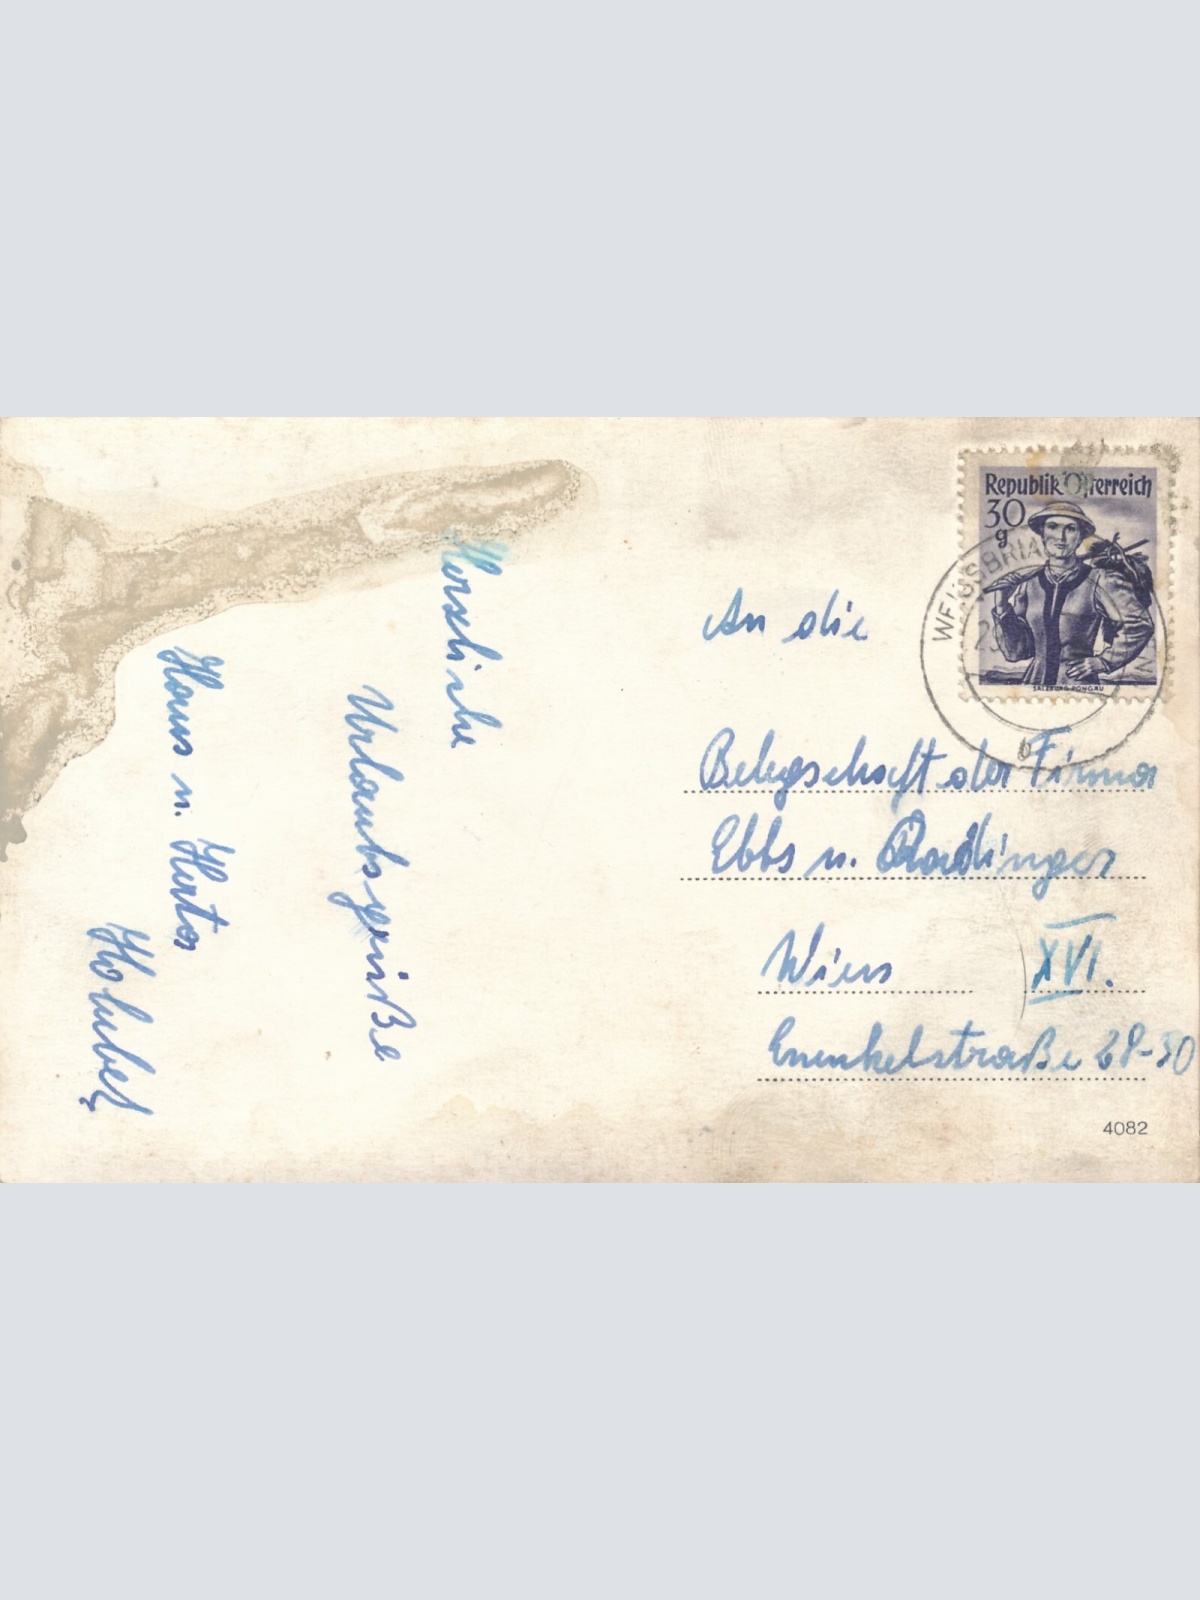 Herzliche
Urlaubsgrüße
Hans u. Herta
Holub
Republik Österreich
30
g
SALZBURG PONGAU
WEISSBRIACH
b
An die
Belegschaft der Firma
Ebbs u. Radinger
Wien XVI.
Enenkelstraße 28-30
4082